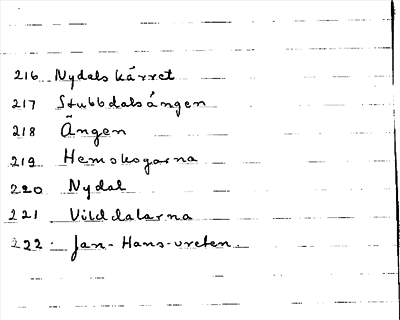 216 Nydalskärret
217 Stubbdalsängen
218 Ängen
219 Hemskogarna
220 Nydal
221 Vilddalarna
222 Jan-Hans-vreten.